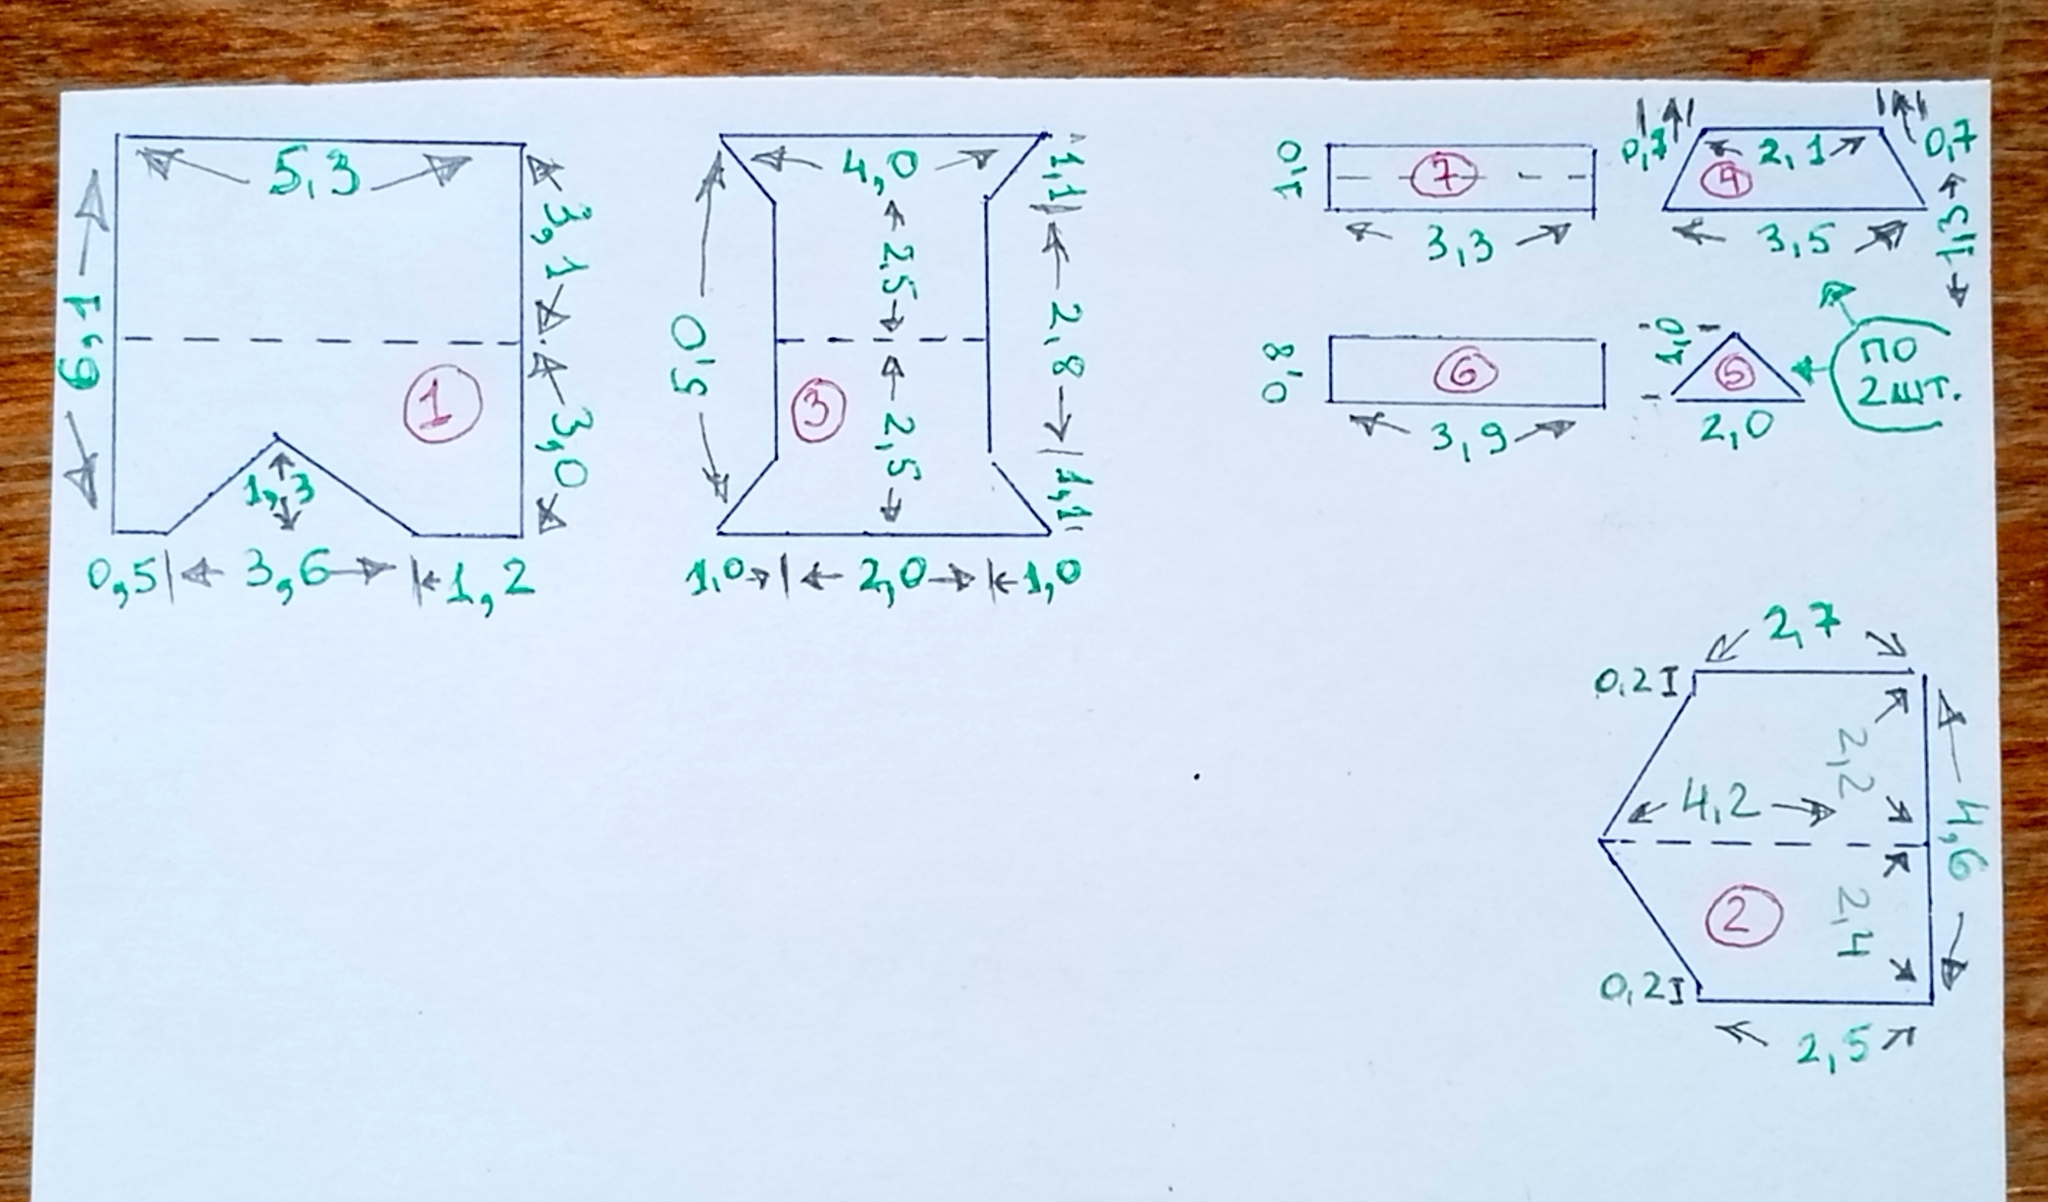 5,3
6,1
3,1
3,0
1
1,3
0,5
3,6
1,2
4,0
5,0
2,5
2,5
3
1,1
2,8
1,1
1,0
2,0
1,0
1,0
7
3,3
0,7
2,1
0,7
4
3,5
1,3
0,8
6
3,9
1,0
5
2,0
ПО
2 ШТ.
2,7
0,2
2,2
4,2
4,6
2
2,4
0,2
2,5